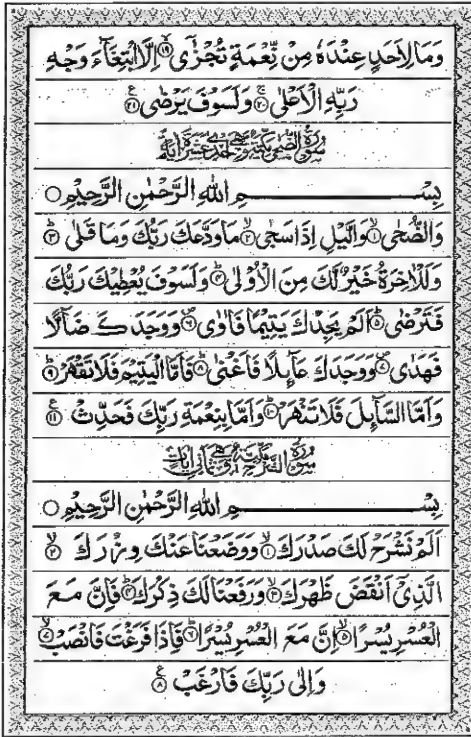 وَمَا لِاَحَدٍ عِنْدَهٗ مِنْ نِّعْمَةٍ تُجْزٰۤى ۙ﴿۱۹﴾ اِلَّا ابْتِغَآءَ وَجْهِ
رَبِّهِ الْاَعْلٰى ۚ﴿۲۰﴾ وَلَسَوْفَ يَرْضٰى ﴿۲۱﴾
سُوْرَةُ الضُّحٰى مَكِّيَّةٌ وَّهِيَ اِحْدٰى عَشَرَةَ اٰيَةً
بِسْمِ اللّٰهِ الرَّحْمٰنِ الرَّحِيْمِ ○
وَالضُّحٰى ۙ﴿۱﴾ وَالَّيْلِ اِذَا سَجٰى ۙ﴿۲﴾ مَا وَدَّعَكَ رَبُّكَ وَمَا قَلٰى ؕ﴿۳﴾
وَلَلْاٰخِرَةُ خَيْرٌ لَّكَ مِنَ الْاُوْلٰى ؕ﴿۴﴾ وَلَسَوْفَ يُعْطِيْكَ رَبُّكَ
فَتَرْضٰى ؕ﴿۵﴾ اَلَمْ يَجِدْكَ يَتِيْمًا فَاٰوٰى ۪﴿۶﴾ وَوَجَدَكَ ضَآلًّا
فَهَدٰى ۪﴿۷﴾ وَوَجَدَكَ عَآىِٕلًا فَاَغْنٰى ؕ﴿۸﴾ فَاَمَّا الْيَتِيْمَ فَلَا تَقْهَرْ ؕ﴿۹﴾
وَاَمَّا السَّآىِٕلَ فَلَا تَنْهَرْ ؕ﴿۱۰﴾ وَاَمَّا بِنِعْمَةِ رَبِّكَ فَحَدِّثْ ﴿۱۱﴾
سُوْرَةُ اَلَمْ نَشْرَحْ مَكِّيَّةٌ وَّهِيَ ثَمَانِيْ اٰيَاتٍ
بِسْمِ اللّٰهِ الرَّحْمٰنِ الرَّحِيْمِ ○
اَلَمْ نَشْرَحْ لَكَ صَدْرَكَ ۙ﴿۱﴾ وَوَضَعْنَا عَنْكَ وِزْرَكَ ۙ﴿۲﴾
الَّذِيْۤ اَنْقَضَ ظَهْرَكَ ۙ﴿۳﴾ وَرَفَعْنَا لَكَ ذِكْرَكَ ؕ﴿۴﴾ فَاِنَّ مَعَ
الْعُسْرِ يُسْرًا ۙ﴿۵﴾ اِنَّ مَعَ الْعُسْرِ يُسْرًا ؕ﴿۶﴾ فَاِذَا فَرَغْتَ فَانْصَبْ ۙ﴿۷﴾
وَاِلٰى رَبِّكَ فَارْغَبْ ﴿۸﴾